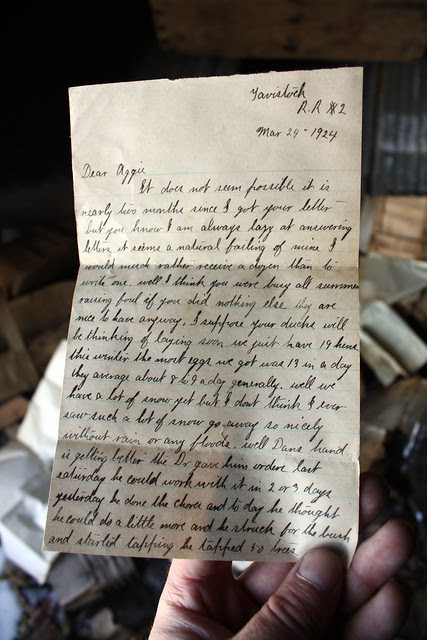 Tavistock
R.R #2
Mar 24th 1924
Dear Aggie
It does not seem possible it is
nearly two months since I got your letter
but you know I am always lazy at answering
letters it seems a natural failing of mine I
would much rather receive a dozen than to
write one. well I think you were busy all summer
raising fowl if you did nothing else. they are
nice to have anyway. I suppose your ducks will
be thinking of laying soon. we just have 19 hens
this winter the most eggs we got was 13 in a day
they average about 8 to 9 a day generally. well we
have a lot of snow yet but I dont think I ever
saw such a lot of snow go away so nicely
without rain or any floods. well Dans hand
is getting better the Dr gave him orders last
saturday he could work with it in 2 or 3 days
yesterday he done the chores and to day he thought
he could do a little more and he struck for the bush
and started tapping he tapped 50 trees